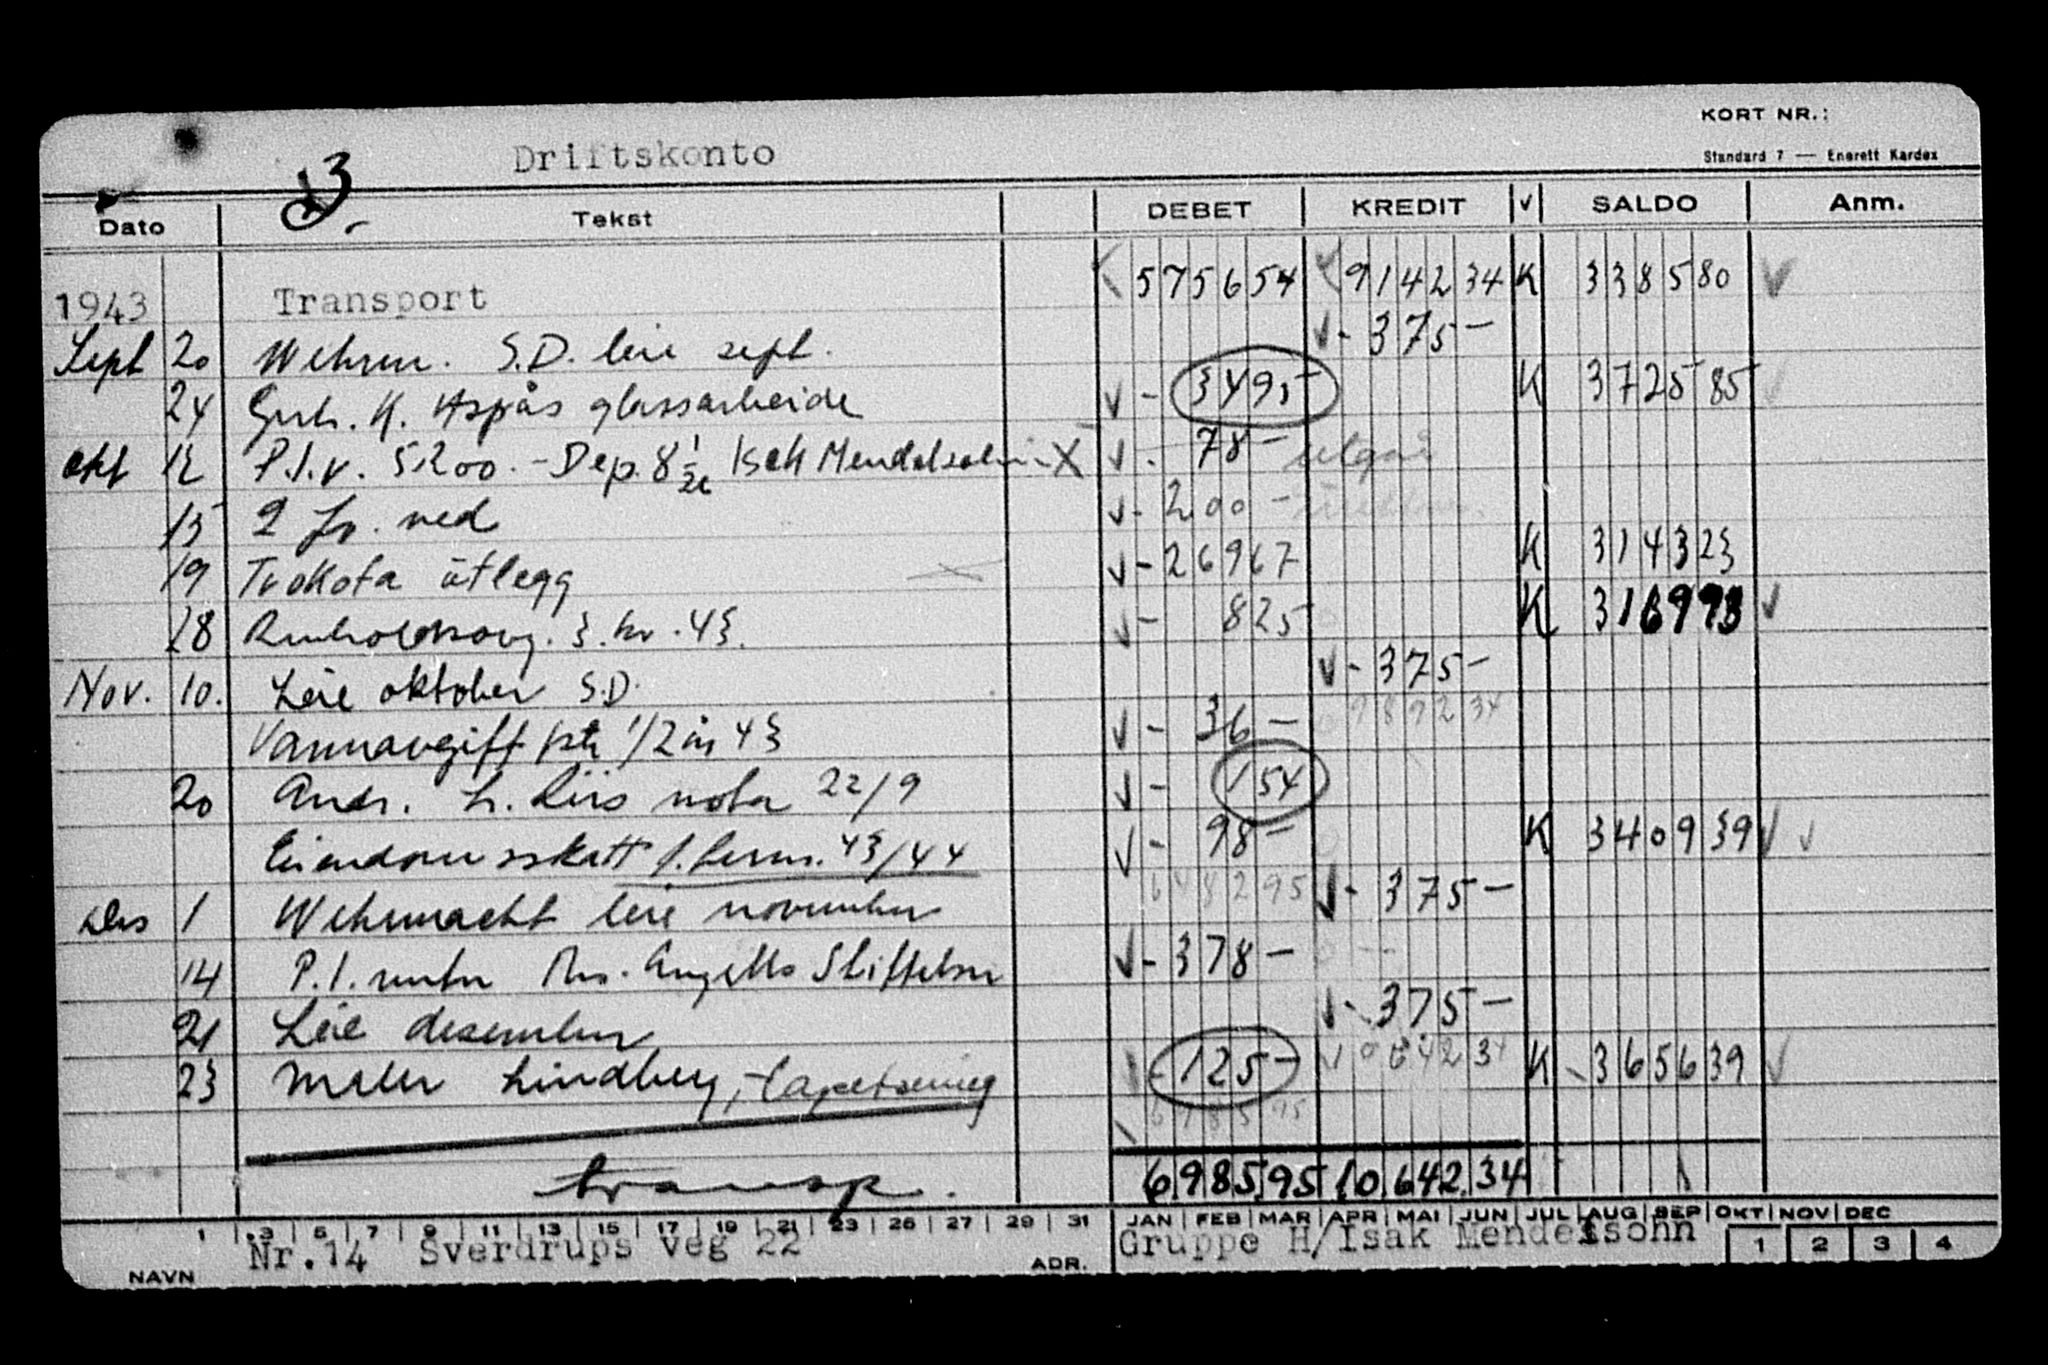 KORT NR.:
Standard 7 — Enerett Kardex
Driftskonto
Dato Tekst DEBET KREDIT √ SALDO Anm.
1943 Transport 5756 54 9142 34 K 3385 80
Sept 20 Wehrm. S.D. leie sept. 375 —
24 K. Aspås glassarbeide 34 95 K 3725 85
Okt 12 P.I.v. 5200.- Dep. 8 Isak Mendelsohn X 78 — utgår
15 2 fv. ved 200 —
19 Trokota utlegg 269 67 K 3143 23
28 Renholdsavg. 3. kv. 43. 8 25 K 3169 93
Nov. 10. Leie oktober S.D. 375 —
9892 34
Vannavgift 1/2 år 43 36 —
20 Andr. L. Riis nota 22/9 1 54
Eiendomsskatt f. term. 43/44 98 — K 3409 39
6482 95
Des 1 Wehrmacht leie november 375 —
14 P.I. renter Ths. Angells Stiftelser 378 —
21 Leie desember 375 —
10642 34
23 Maler Lindberg, tapetsering 125 — K 3656 39
6985 95
transp. 6985 95 10642 34
1 3 5 7 9 11 13 15 17 19 21 23 25 27 29 31 JAN FEB MAR APR MAI JUN JUL AUG SEP OKT NOV DEC
NAVN Nr.14 Sverdrups veg 22 ADR. Gruppe H/Isak Mendelssohn 1 2 3 4